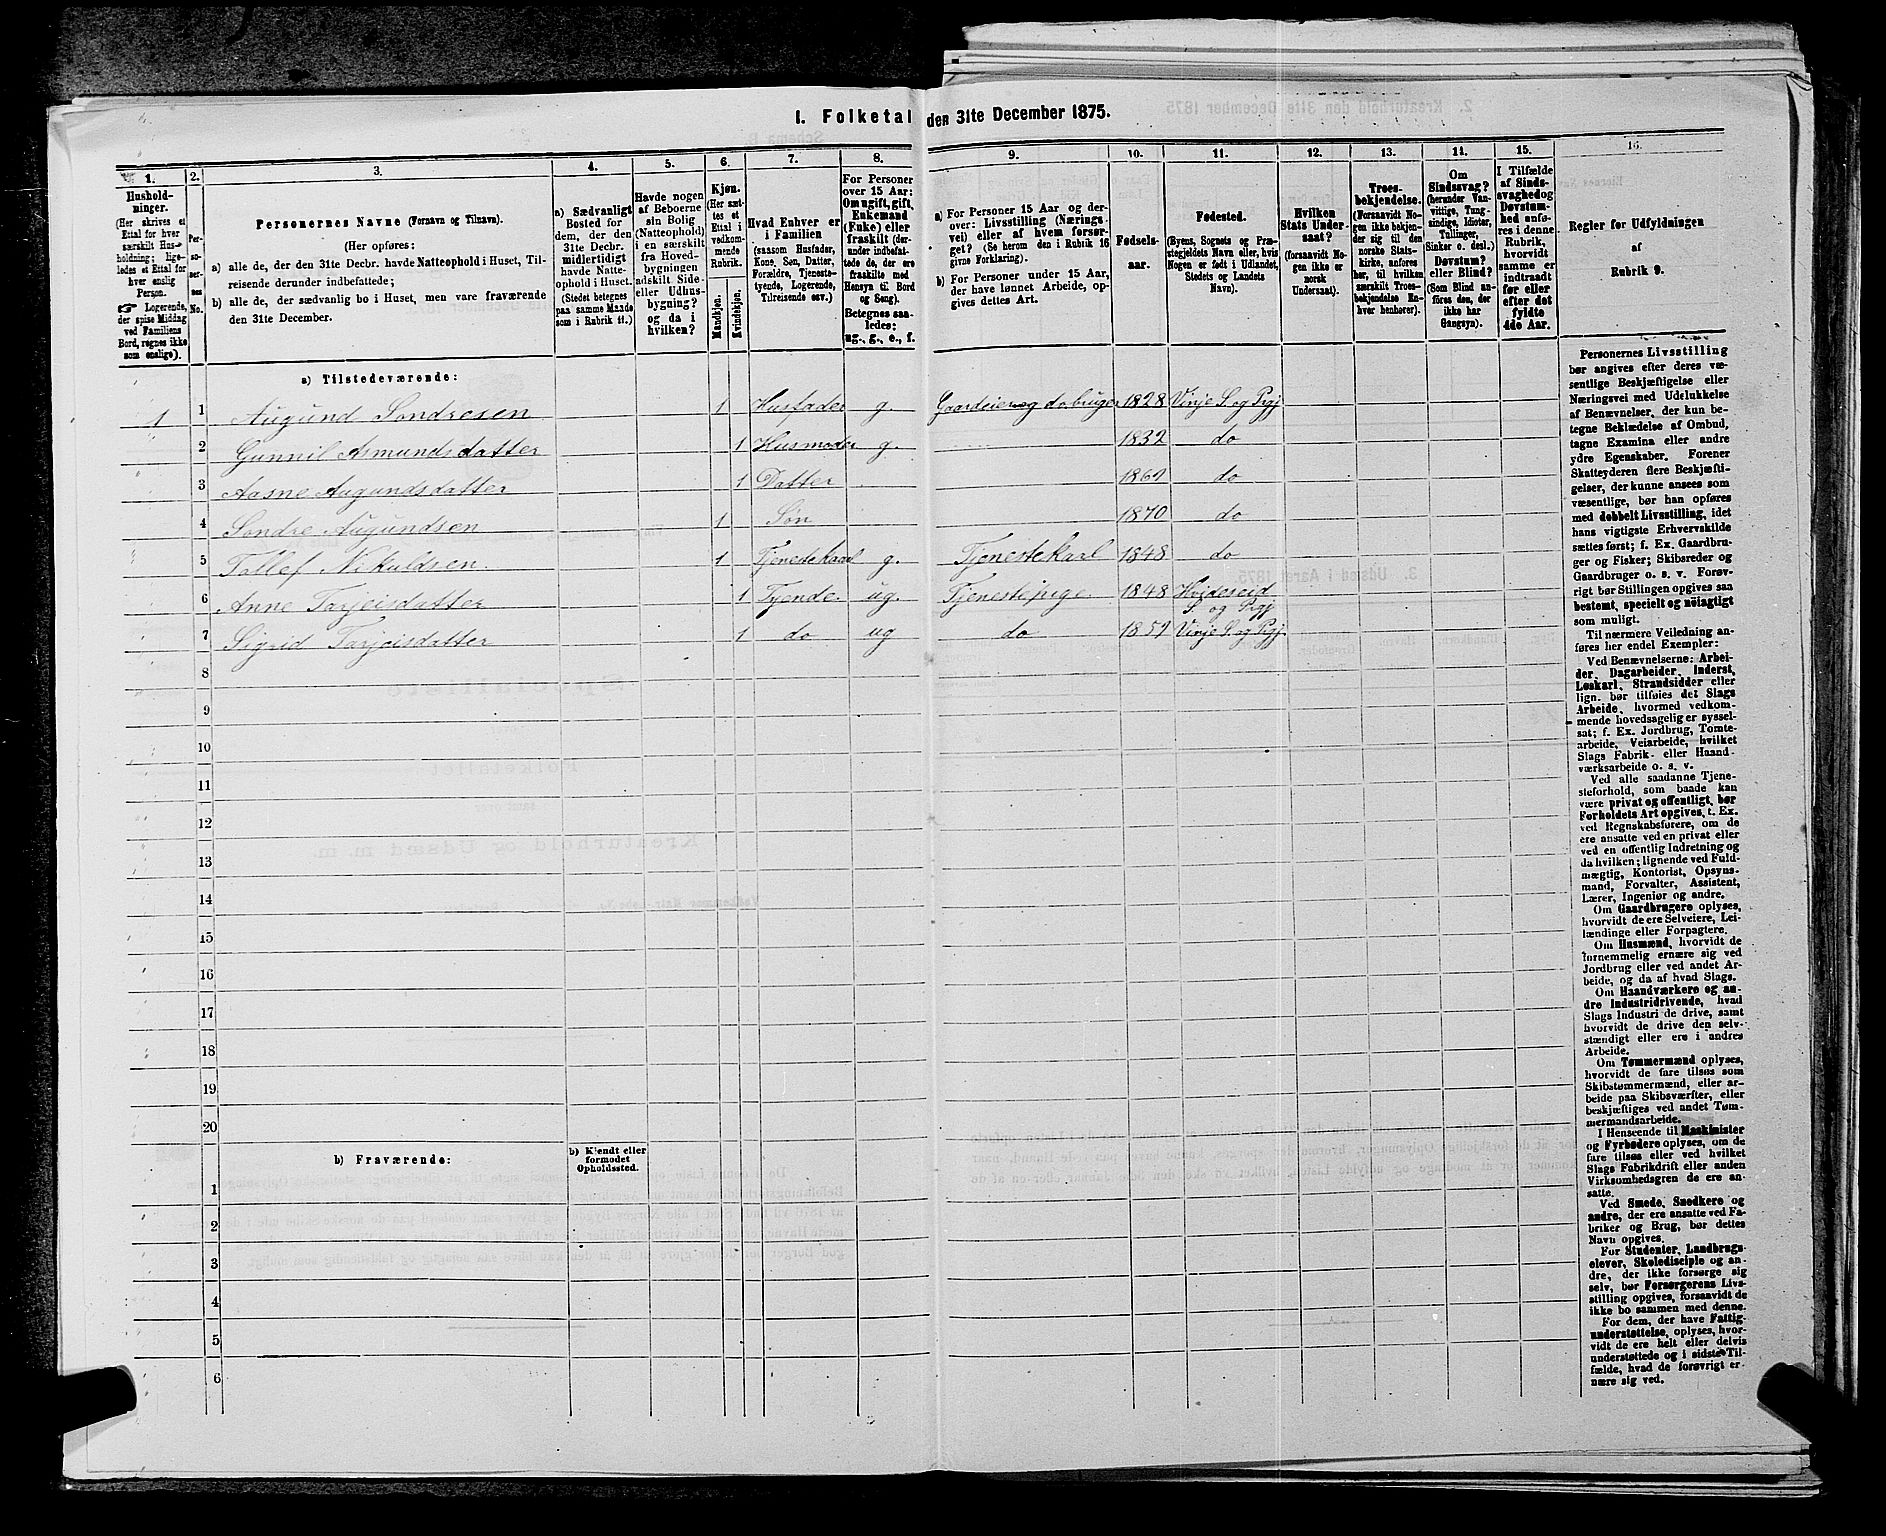 I. Folketal den 31te December 1875.
1. 2. 3. 4. 5. 6. 7. 8. 9. 10. 11. 12. 13. 14. 15. 16.
Hushold-
ninger.
(Her skrives et
Ettal for hver
særskilt Hus-
holdning; lige-
ledes et Ettal for
hver enslig
Person.
☞ Logerende,
der spise Middag
ved Familiens
Bord, regnes ikke
som enslige).
Per-
so-
ner-
nes
No.
Personernes Navne (Fornavn og Tilnavn).
(Her opføres:
a) alle de, der den 31te Decbr. havde Natteophold i Huset, Til-
reisende derunder indbefattede;
b) alle de, der sædvanlig bo i Huset, men vare fraværende
den 31te December.
a) Sædvanligt
Bosted for
dem, der den
31te Decbr.
midlertidigt
havde Natte-
ophold i Huset.
(Stedet betegnes
paa samme Maade
som i Rubrik 11.)
Havde nogen
af Beboerne
sin Bolig
(Natteophold)
i en særskilt
fra Hoved-
bygningen
adskilt Side-
eller Udhus-
bygning?
og da i
hvilken?
Kjøn.
(Her sæt-
tes et
Ettal i
vedkom-
mende
Rubrik.)
Mandkjøn.
Kvindekjøn.
Hvad Enhver er
i Familien
(saasom Husfader,
Kone, Søn, Datter,
Forældre, Tjeneste-
tyende, Logerende,
Tilreisende osv.)
For Personer
over 15 Aar:
Om ugift, gift,
Enkemand
(Enke) eller
fraskilt (der-
under indbefat-
tede de, der ere
fraskilte med
Hensyn til Bord
og Seng).
Betegnes saa-
ledes:
ug., g., e., f.
a) For Personer 15 Aar og der-
over: Livsstilling (Nærings-
vei) eller af hvem forsør-
get? (Se herom den i Rubrik 16
givne Forklaring).
b) For Personer under 15 Aar,
der have lønnet Arbeide, op-
gives dettes Art.
Fødsels-
aar.
Fødested.
(Byens, Sognets og Præ-
stegjeldets Navn eller, hvis
Nogen er født i Udlandet,
Stedets og Landets
Navn).
Hvilken
Stats Under-
saat?
(forsaavidt No-
gen ikke er
norsk
Undersaat).
Troes-
bekjendelse.
(Forsaavidt No-
gen ikke bekjen-
der sig til den
norske Stats-
kirke, anføres
her, til hvilken
særskilt Troes-
bekjendelse En-
hver henhører).
Om
Sindssvag?
(herunder Van-
vittige, Tung-
sindige, Idioter,
Tullinger,
Sinker o. desl.)
Døvstum?
eller Blind?
(Som Blind an-
føres den, der
ikke har
Gangsyn).
I Tilfælde
af Sinds-
svaghed og
Døvstum-
hed anfø-
res i denne
Rubrik,
hvorvidt
samme er
indtraadt
før eller
efter det
fyldte
4de Aar.
Regler for Udfyldningen
af
Rubrik 9.
a) Tilstedeværende:
1 1 Augund Sondresen 1 Husfader g. Gaardeier og do bruger 1828 Vinje S. og Prgj
2 Gunnil Asmundsdatter 1 Husmoder g. 1832 do
3 Aasne Augundsdatter 1 Datter 1869 do
4 Sondre Augundsen 1 Søn 1870 do
5 Tollef Nikuldsen 1 Tjenestekaal g. Tjenestekarl 1848 do
6 Anne Tarjeisdatter 1 Tjende. ug. Tjenestepige 1848 Hvideseid S. og Prgj
7 Sigrid Tarjeisdatter 1 do ug do 1859 Vinje S. og Prgj.
8
9
10
11
12
13
14
15
16
17
18
19
20
b) Fraværende:
b) Kjendt eller
formodet
Opholdssted.
1
2
3
4
5
6
Personernes Livsstilling
bør angives efter deres væ-
sentlige Beskjæftigelse eller
Næringsvei med Udelukkelse
af Benævnelser, der kun be-
tegne Beklædelse af Ombud,
tagne Examina eller andre
ydre Egenskaber. Forener
Skatteyderen flere Beskjæfti-
gelser, der kunne ansees som
væsentlige, bør han opføres
med dobbelt Livsstilling, idet
hans vigtigste Erhvervskilde
sættes først; f. Ex. Gaardbru-
ger og Fisker; Skibsreder og
Gaardbruger o. s. v. Forøv-
rigt bør Stillingen opgives saa
bestemt, specielt og nøiagtigt
som muligt.
Til nærmere Veiledning an-
føres her endel Exempler:
Ved Benævnelserne: Arbei-
der, Dagarbeider, Inderst,
Løskarl, Strandsidder eller
lign. bør tilføies det Slags
Arbeide, hvormed vedkom-
mende hovedsagelig er syssel-
sat; f. Ex. Jordbrug, Tomte-
arbeide, Veiarbeide, hvilket
Slags Fabrik- eller Haand-
værksarbeide o. s. v.
Ved alle saadanne Tjene-
steforhold, som baade kan
være privat og offentligt, bør
Forholdets Art opgives, t. Ex.
ved Regnskabsførere, om de
ere ansatte ved en privat eller
ved en offentlig Indretning og
da hvilken; lignende ved Fuld-
mægtig, Kontorist, Opsyns-
mand, Forvalter, Assistent,
Lærer, Ingeniør og andre.
Om Gaardbrugere oplyses,
hvorvidt de ere Selveiere, Lei-
lændinge eller Forpagtere.
Om Husmænd, hvorvidt de
fornemmelig ernære sig ved
Jordbrug eller ved andet Ar-
beide, og da af hvad Slags.
Om Haandværkere og an-
dre Industridrivende, hvad
Slags Industri de drive, samt
hvorvidt de drive den selv-
stændigt eller ere i andres
Arbeide.
Om Tømmermænd oplyses,
hvorvidt de fare tilsøs som
Skibstømmermænd, eller ar-
beide paa Skibsværfter, eller
beskjæftiges ved andet Tøm-
mermandsarbeide.
I Henseende til Maskinister
og Fyrbødere oplyses, om de
fare tilsøs eller ved hvilket
Slags Fabrikdrift eller anden
Virksomhedsgren de ere an-
satte.
Ved Smede, Snedkere og
andre, der ere ansatte ved Fa-
briker og Brug, bør dettes
Navn opgives.
For Studenter, Landbrugs-
elever, Skoledisciple og an-
dre, der ikke forsørge sig
selv, bør Forsørgerens Livs-
stilling opgives, forsaavidt de
ikke bo sammen med denne.
For dem, der have Fattig-
understøttelse, oplyses, hvor-
vidt de ere helt eller delvis
understøttede og i sidste Til-
fælde, hvad de forøvrigt er-
nære sig ved.